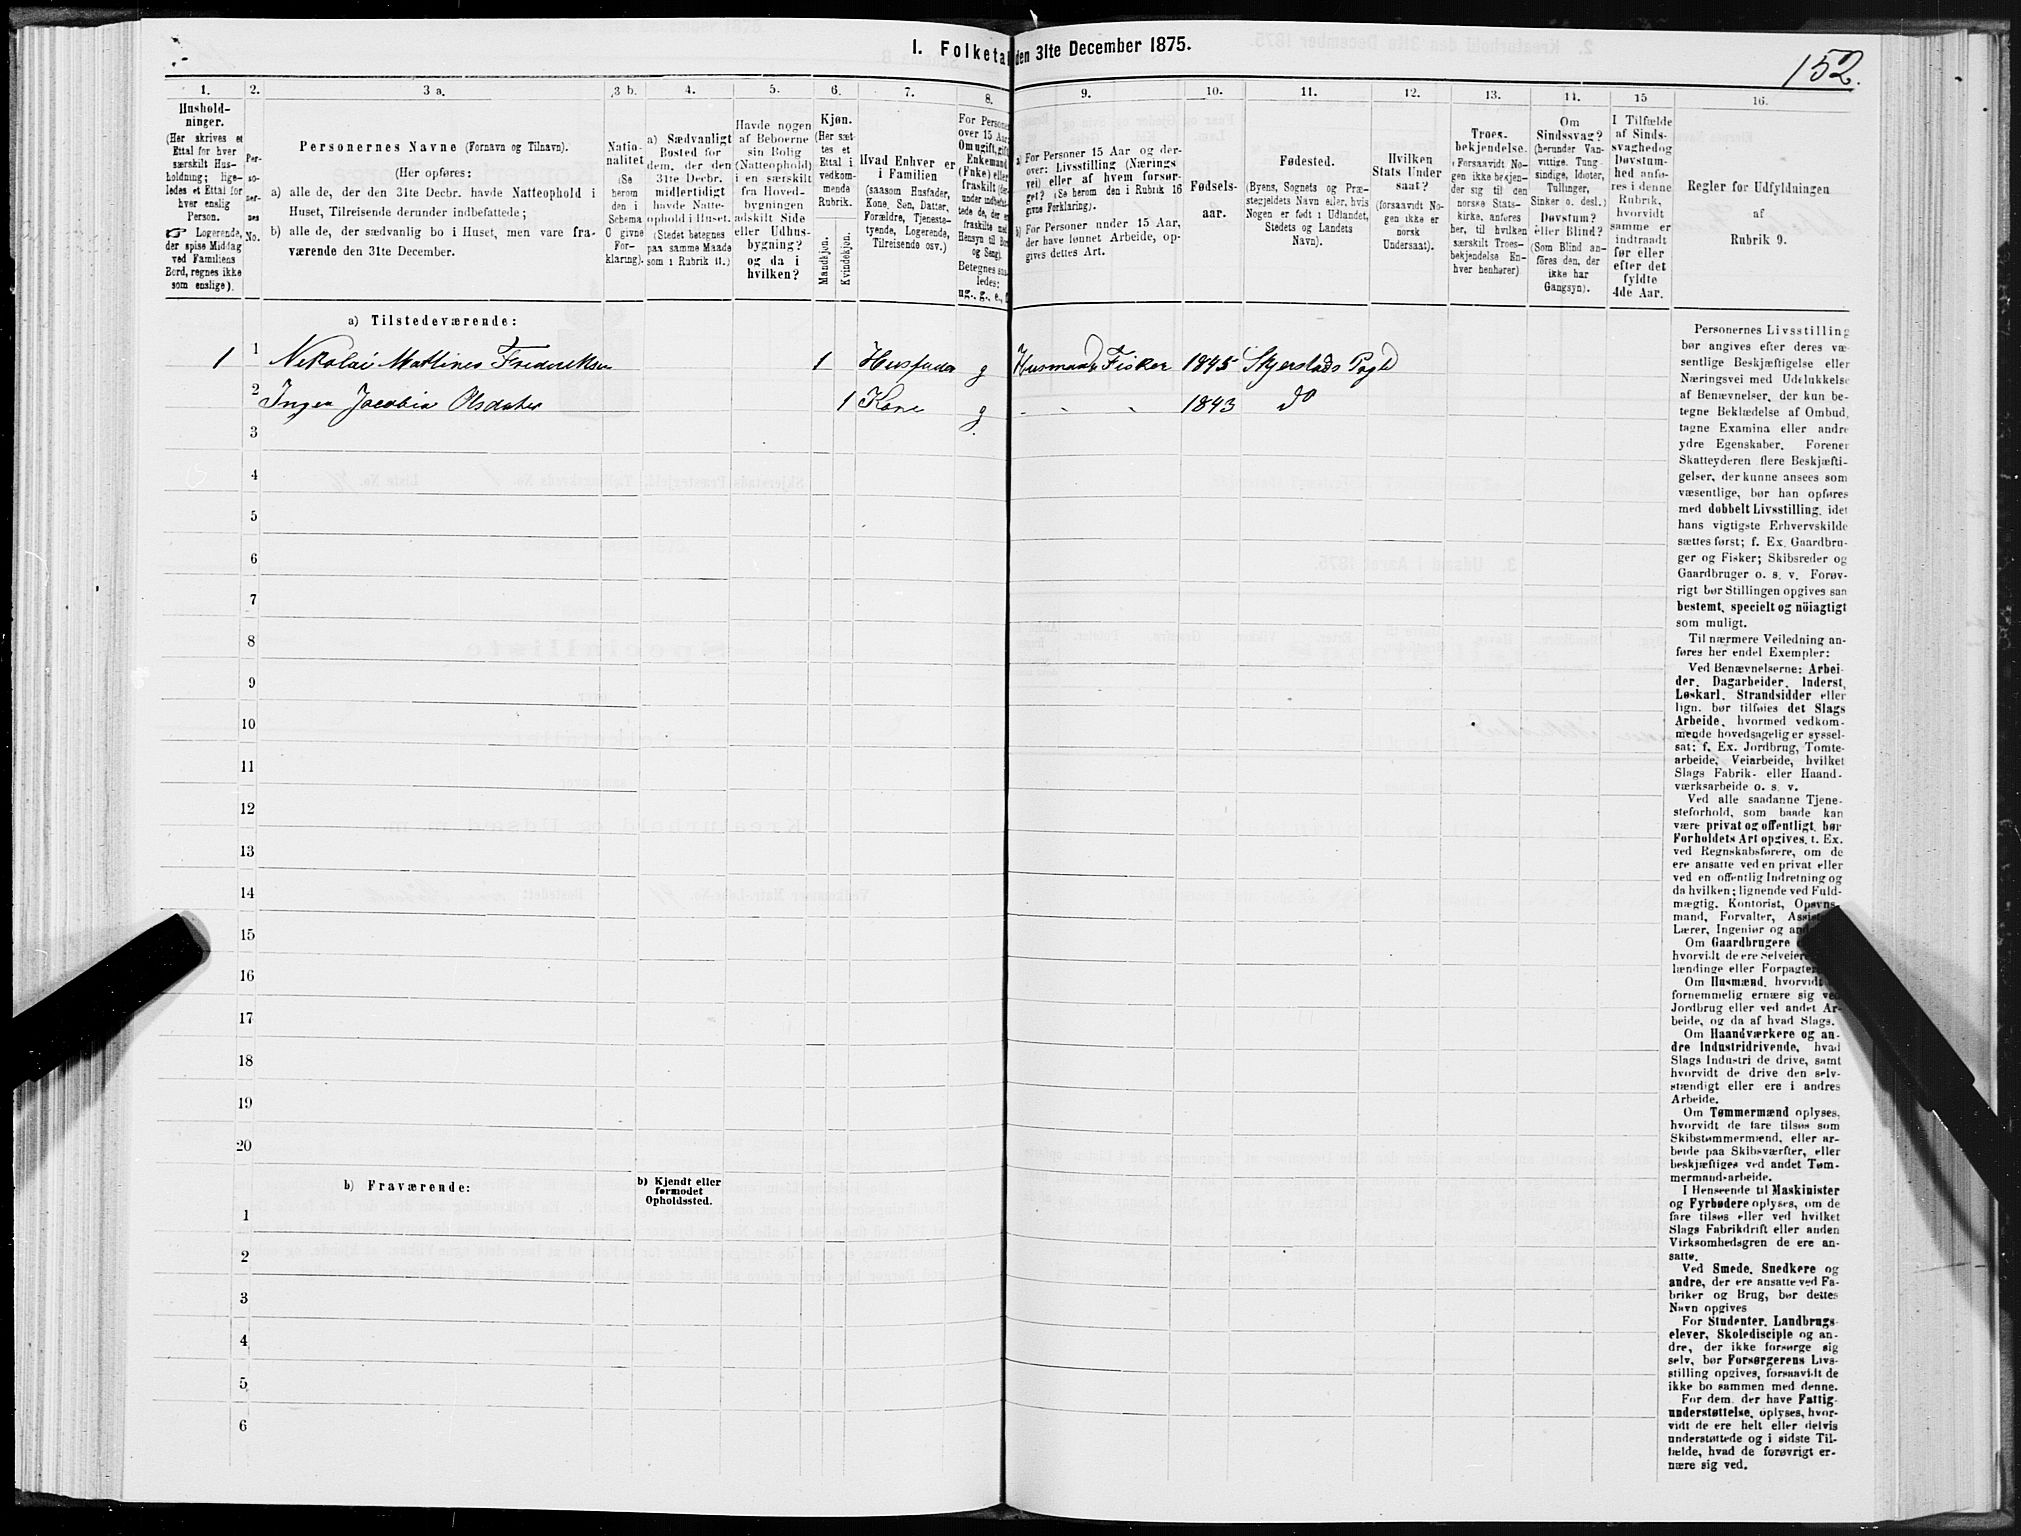 I. Folketal den 31te December 1875.
152.
1. 2. 3 a. 3 b. 4. 5. 6. 7. 8. 9. 10. 11. 12. 13. 14. 15 16.
Hushold-
ninger.
(Her skrives et
Ettal for hver
særskilt Hus-
holdning; lige-
ledes et Ettal for
hver enslig
Person.
☞ Logerende,
der spise Middag
ved Familiens
Bord, regnes ikke
som enslige).
Per-
so-
ner-
nes
No.
Personernes Navne (Fornavn og Tilnavn).
(Her opføres:
a) alle de, der den 31te Decbr. havde Natteophold i
Huset, Tilreisende derunder indbefattede;
b) alle de, der sædvanlig bo i Huset, men vare fra-
værende den 31te December.
Natio-
nalitet
(Se
herom
den i
Schema
C givne
For-
klaring).
a) Sædvanligt
Bosted for
dem, der den
31te Decbr.
midlertidigt
havde Natte-
ophold i Huset.
(Stedet betegnes
paa samme Maade
som i Rubrik 11.)
Havde nogen
af Beboerne
sin Bolig
(Natteophold)
i en særskilt
fra Hoved-
bygningen
adskilt Side
eller Udhus-
bygning?
og da i
hvilken?
Kjøn.
(Her sæt-
tes et
Ettal i
vedkom-
mende
Rubrik.
Mandkjøn.
Kvindekjøn.
Hvad Enhver er
i Familien
(saasom Husfader,
Kone, Søn, Datter,
Forældre, Tjeneste-
tyende, Logerende,
Tilreisende osv.)
For Personer
over 15 Aar
Om ugift, gift
Enkemand
(Enke) eller
fraskilt
Betegnes saa-
ledes:
ug., g., e., f.
a) For Personer 15 Aar og der-
over: Livsstilling (Nærings
vei) eller af hvem forsør-
get? (Se herom den i Rubrik 16
givne Forklaring).
b) For Personer under 15 Aar,
der have lønnet Arbeide, op-
gives dettes Art.
Fødsels-
aar.
Fødested.
(Byens, Sognets og Præ-
stegjeldets Navn eller, hvis
Nogen er født i Udlandet,
Stedets og Landets
Navn).
Hvilken
Stats Under
saat?
(forsaavidt No-
gen ikke er
norsk
Undersaat).
Troes-
bekjendelse.
(Forsaavidt No-
gen ikke bekjen-
der sig til den
norske Stats-
kirke, anføres
her, til hvilken
særskilt Troes-
bekjendelse En-
hver henhører)
Om
Sindssvag?
(herunder Van-
vittige, Tung-
sindige, Idioter,
Tullinger,
Sinker o. desl.)
Døvstum?
eller Blind?
(Som Blind an-
føres den, der
ikke har
Gangsyn).
I Tilfælde
af Sinds-
svaghed og
Døvstum-
hed anfø-
res i denne
Rubrik,
hvorvidt
samme er
indtraadt
før eller
efter det
fyldte
4de Aar.
Regler for Udfyldningen
af
Rubrik 9.
a) Tilstedeværende:
1 1 Nikolai Mathines Frederiksen 1 Husfader g Husmand Fisker 1845 Skjerstads Pgld
2 Inger Jacobia Olsdater 1 Kone g - - - 1843 do
3
4
5
6
7
8
9
10
11
12
13
14
15
16
17
18
19
20
b) Fraværende:
b) Kjendt eller
formodet
Opholdssted.
1
2
3
4
5
6
Personernes Livsstilling
bør angives efter deres væ-
sentlige Beskjæftigelse eller
Næringsvei med Udelukkelse
af Benævnelser, der kun be-
tegne Beklædelse af Ombud,
tagne Examina eller andre
ydre Egenskaber. Forener
Skatteyderen flere Beskjæfti-
gelser, der kunne ansees som
væsentlige, bør han opføres
med dobbelt Livsstilling, idet
hans vigtigste Erhvervskilde
sættes først; f. Ex. Gaardbru-
ger og Fisker; Skibsreder og
Gaardbruger o. s. v. Forøv-
rigt bør Stillingen opgives saa
bestemt, specielt og nöiagtigt
som muligt.
Til nærmere Veiledning an-
føres her endel Exempler:
Ved Benævnelserne: Arbei-
der, Dagarbeider, Inderst,
Løskarl, Strandsidder eller
lign. bør tilføies det Slags
Arbeide, hvormed vedkom-
mende hovedsagelig er syssel-
sat; f. Ex. Jordbrug, Tomte-
arbeide, Veiarbeide, hvilket
Slags Fabrik- eller Haand-
værksarbeide o. s. v.
Ved alle saadanne Tjene-
steforhold, som baade kan
være privat og offentligt, bør
Forholdets Art opgives, f. Ex.
ved Regnskabsførere, om de
ere ansatte ved en privat eller
ved en offentlig Indretning og
da hvilken; lignende ved Fuld-
mægtig, Kontorist, Opsyns-
mand, Forvalter,
Lærer, Ingeniør og
Om Gaardbrugere
hvorvidt de ere Selveiere
lændinge eller Forpagtere
Om Husmænd, hvorvidt
fornemmelig ernære sig ved
Jordbrug eller ved andet Ar-
beide, og da af hvad Slags.
Om Haandværkere og an-
dre Industridrivende, hvad
Slags Industri de drive, samt
hvorvidt de drive den selv-
stændigt eller ere i andres
Arbeide.
Om Tømmermænd oplyses,
hvorvidt de fare tilsøs som
Skibstømmermænd, eller ar-
beide paa Skibsværfter, eller
beskjæftiges ved andet Tøm-
mermand-arbeide.
I Henseende til Maskinister
og Fyrbødere oplyses, om de
fare tilsøs eller ved hvilket
Slags Fabrikdrift eller anden
Virksomhedsgren de ere an-
satte.
Ved Smede, Snedkere og
andre, der ere ansatte ved Fa-
briker og Brug, bør dettes
Navn opgives
For Studenter, Landbrugs-
elever, Skoledisciple og an-
dre, der ikke forsørge sig
selv, bør Forsørgerens Livs-
stilling opgives, forsaavidt de
ikke bo sammen med denne.
For dem, der have Fattig-
understøttelse, oplyses, hvor-
vidt de ere helt eller delvis
understøttede og i sidste Til-
fælde, hvad de forøvrigt er-
nære sig ved.